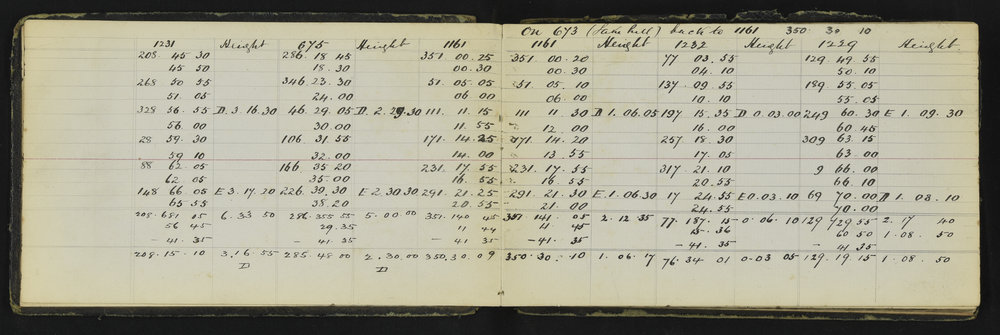 On 673 (Lake hill) back to 1161 350 30 10
1231 Height 675 Height 1161 1161 Height 1232 Height 1229 Height
208 45 30 286 18 45 351 00 25 351 00 20 77 03 55 129 49 55
45 50 18 30 00 30 00 30 04 10 50 10
268 50 55 346 23 30 51 05 05 51 05 10 137 09 55 189 55 05
51 05 24 00 06 00 06 00 10 10 55 05
328 56 55 D 3.16.30 46 29 05 D 2.29.30 111 11 15 111 11 30 D 1.06.05 197 15 35 D 0.03.00 249 60 30 E 1.09.30
56 00 30 00 11 55 12 00 16 00 60 45
28 59 30 106 31 55 171 14 25 171 14 20 257 18 30 309 63 15
59 10 32 00 14 00 13 55 17 05 63 00
88 62 05 166 35 20 231 17 55 231 17 55 317 21 10 9 66 00
62 05 35 00 16 55 16 55 20 55 66 10
148 66 05 E 3.17.20 226 39 30 E 2.30.30 291 21 25 291 21 30 E 1.06.30 17 24 55 E 0.03.10 69 70 00 D 1.08.10
65 55 38 20 20 55 21 00 24 55 70 00
208 681 05 6.33 50 286 355 55 5.00.00 351 140 45 351 141 05 2.12.35 77 187 15 0.06.10 129 729 55 2.17 40
56 45 29 35 11 44 11 45 15 36 60 50 1.08 50
- 41 35 - 41 35 - 41 35 - 41 35 - 41 35 - 41 35
208.15.10 3.16.55 285.48.00 2.30.00 350.30.09 350.30.10 1.06.17 76.34 01 0.03 05 129.19.15 1.08 50
D D